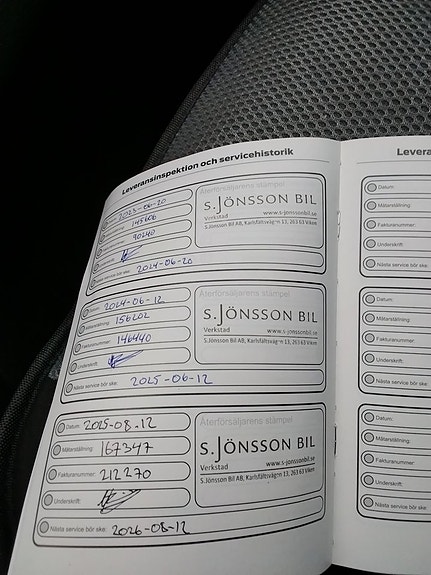 Leveransinspektion och servicehistorik
2023-06-20
145606
90240
Nästa service bör ske: 2024-06-20
Återförsäljarens stämpel
S.JÖNSSON BIL
Verkstad www.s-jonssonbil.se
S. Jönsson Bil AB, Karlsfältsvägen 13, 263 63 Viken
Datum: 2024-06-12
Mätarställning: 156202
Fakturanummer: 146440
Underskrift:
Nästa service bör ske: 2025-06-12
Återförsäljarens stämpel
S.JÖNSSON BIL
Verkstad www.s-jonssonbil.se
S. Jönsson Bil AB, Karlsfältsvägen 13, 263 63 Viken
Datum: 2025-08-12
Mätarställning: 167347
Fakturanummer: 212270
Underskrift:
Nästa service bör ske: 2026-08-12
Återförsäljarens stämpel
S.JÖNSSON BIL
Verkstad www.s-jonssonbil.se
S. Jönsson Bil AB, Karlsfältsvägen 13, 263 63 Viken
Levera
Datum:
Mätarställning:
Fakturanummer:
Underskrift:
Nästa service bör ske:
Datum:
Mätarställning:
Fakturanummer:
Underskrift:
Nästa service bör ske:
Datum:
Mätarställning:
Fakturanummer:
Underskrift:
Nästa service bör ske: